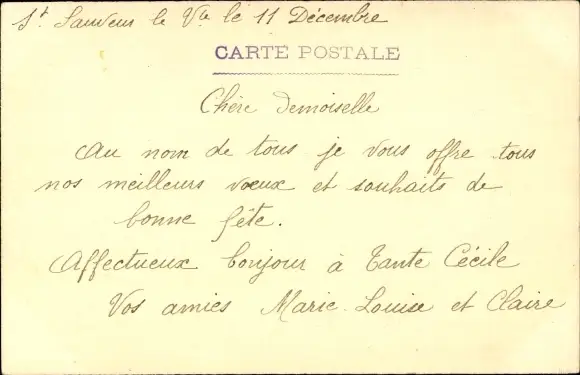 St Sauveur le Vte le 11 Décembre
CARTE POSTALE
Chère demoiselle
Au nom de tous je vous offre tous
nos meilleurs voeux et souhaits de
bonne fête.
Affectueux bonjour à Tante Cécile
Vos amies Marie-Louise et Claire